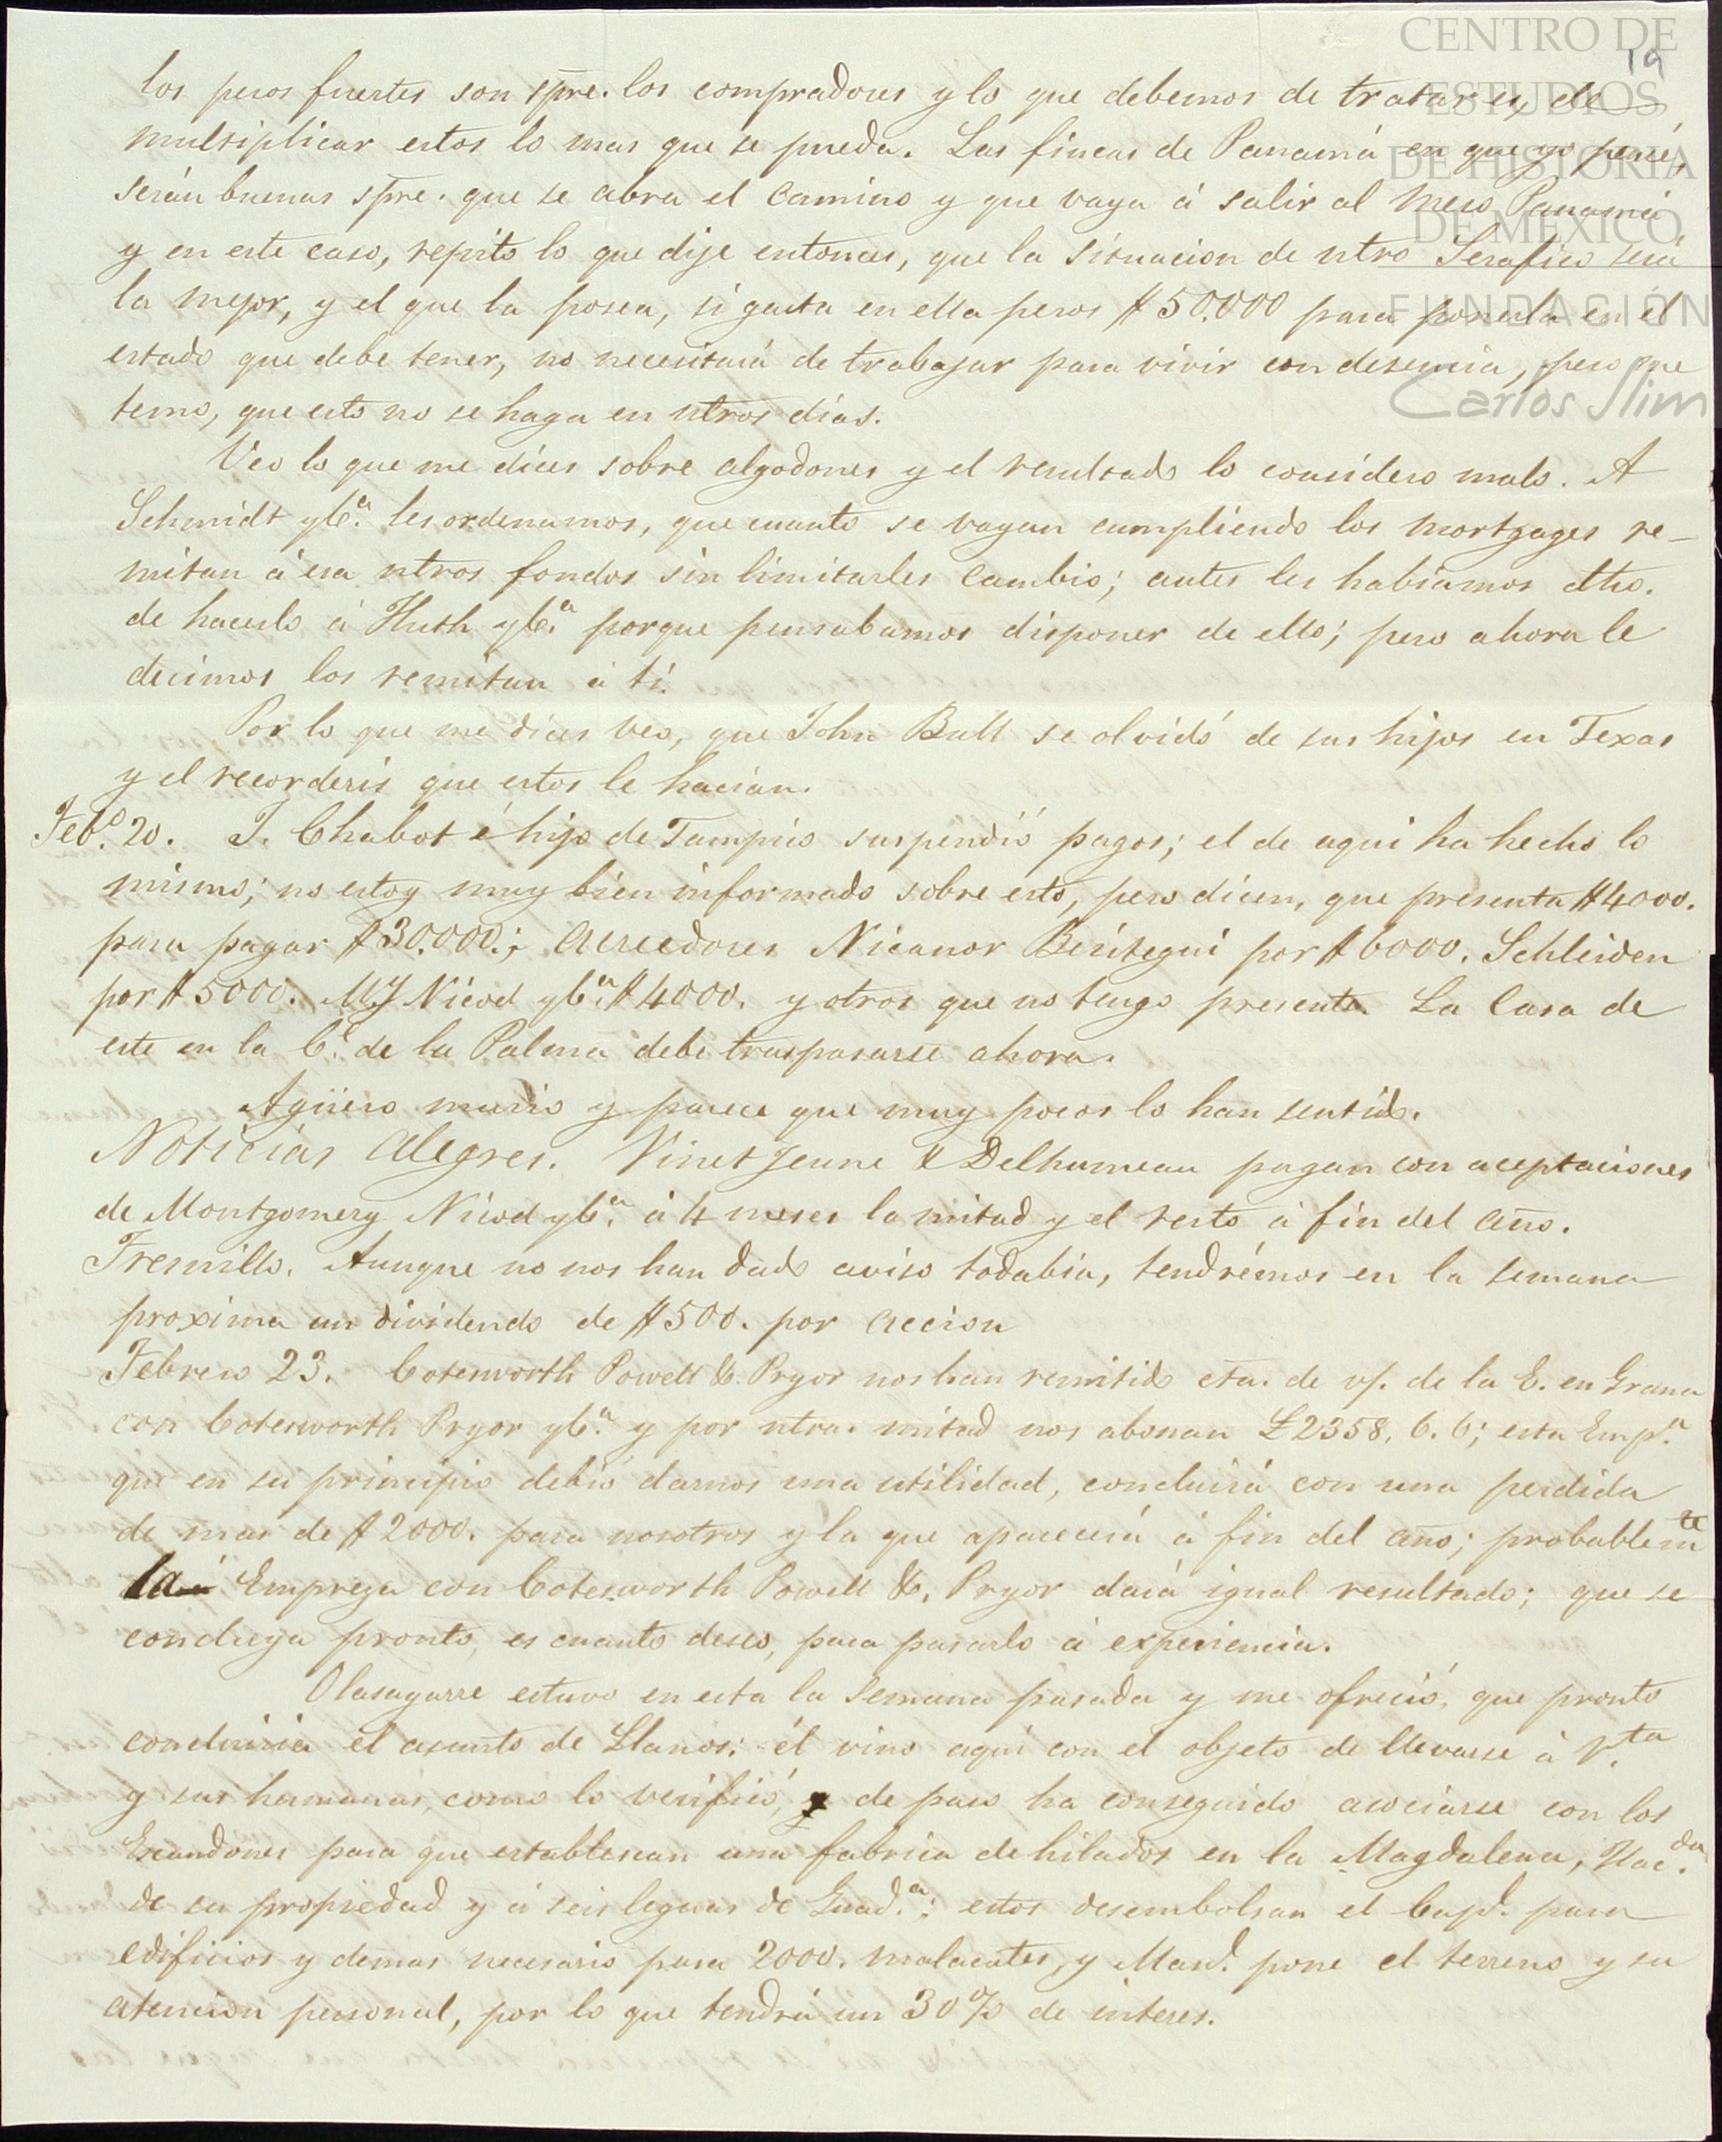 CENTRO DE
ESTUDIOS
DE HISTORIA
DE MÉXICO
FUNDACIÓN
Carlos Slim
19
los pesos fuertes son spre. los compradores y lo que debemos de tratar es, de
multiplicar estos lo mas que se pueda. Las fincas de Panamá en que yo pensé,
serán buenas spre. que se abra el camino y que vaya á salir al meso Panamá
y en este caso, repito lo que dije entonces, que la situacion de ntro Serafico será
la mejor, y el que la posea, si gasta en ella pesos $50.000 para ponerla en el
estado que debe tener, no necesitará de trabajar para vivir con desencia, pero me
temo, que esto no se haga en ntros dias.
Veo lo que me dices sobre algodones y el resultado lo considero malo. A
Schmidt y Cª. les ordenamos, que cuanto se vayan cumpliendo los mortgages re-
mitan á esa ntros fondos sin limitarles cambio; antes les habiamos dho.
de hacerlo á Huth y Cª. porque pensabamos disponer de ello; pero ahora le
decimos los remitan á tí.
Por lo que me dices veo, que John Bull se olvidó de sus hijos en Texas
y el recorderis que estos le hacian.
Febº. 20. J. Chabot é hijo de Tampico suspendió pagos; el de aqui ha hecho lo
mismo; no estoy muy bien informado sobre esto, pero dicen, que presenta $4000.
para pagar $30.000.; acreedores Nicanor Beistegui por $6000. Schleiden
por $5000. MJ Nicod y Cª. $4000. y otros que no tengo presente. La Casa de
este en la C. de la Palma debe traspasarse ahora.
Agüero murio y parece que muy pocos lo han sentido.
Noticias alegres. Vinet Jeune & Delhumeau pagan con aceptaciones
de Montgomery Nicod y Cª. á 4 meses la mitad y el resto á fin del año.
Fresnillo. Aunque no nos han dado aviso todabia, tendrémos en la semana
proxima un dividendo de $500. por accion
Febrero 23. Cotesworth Powell & Pryor nos han remitido cta. de v/. de la E. en Grana
con Cotesworth Pryor y Cª. y por ntra. mitad nos abonan £2358. 6. 6; esta Empª.
que en su principio debió darnos una utilidad, concluirá con una perdida
de mas de $2000. para nosotros y la que aparecerá á fin del año; probablemte
la Empreza con Cotesworth Powell &. Pryor dará igual resultado; que se
concluya pronto, es cuanto deseo, para pasarlo á experiencia.
Olasagarre estuvo en esta la semana pasada y me ofreció, que pronto
concluiria el asunto de Llanos: él vino aqui con el objeto de llevarse á P.ta
y sus hermanas, como lo verificó, y de paso ha conseguido asociarse con los
Escandones para que establescan una fabrica de hilados en la Magdalena, Hac.da
de su propiedad y á seis leguas de Guadª.: estos desembolsan el Capl. para
edificios y demas necesario para 2000. malacates, y Manl. pone el terreno y su
atencion personal, por lo que tendrá un 30% de interes.